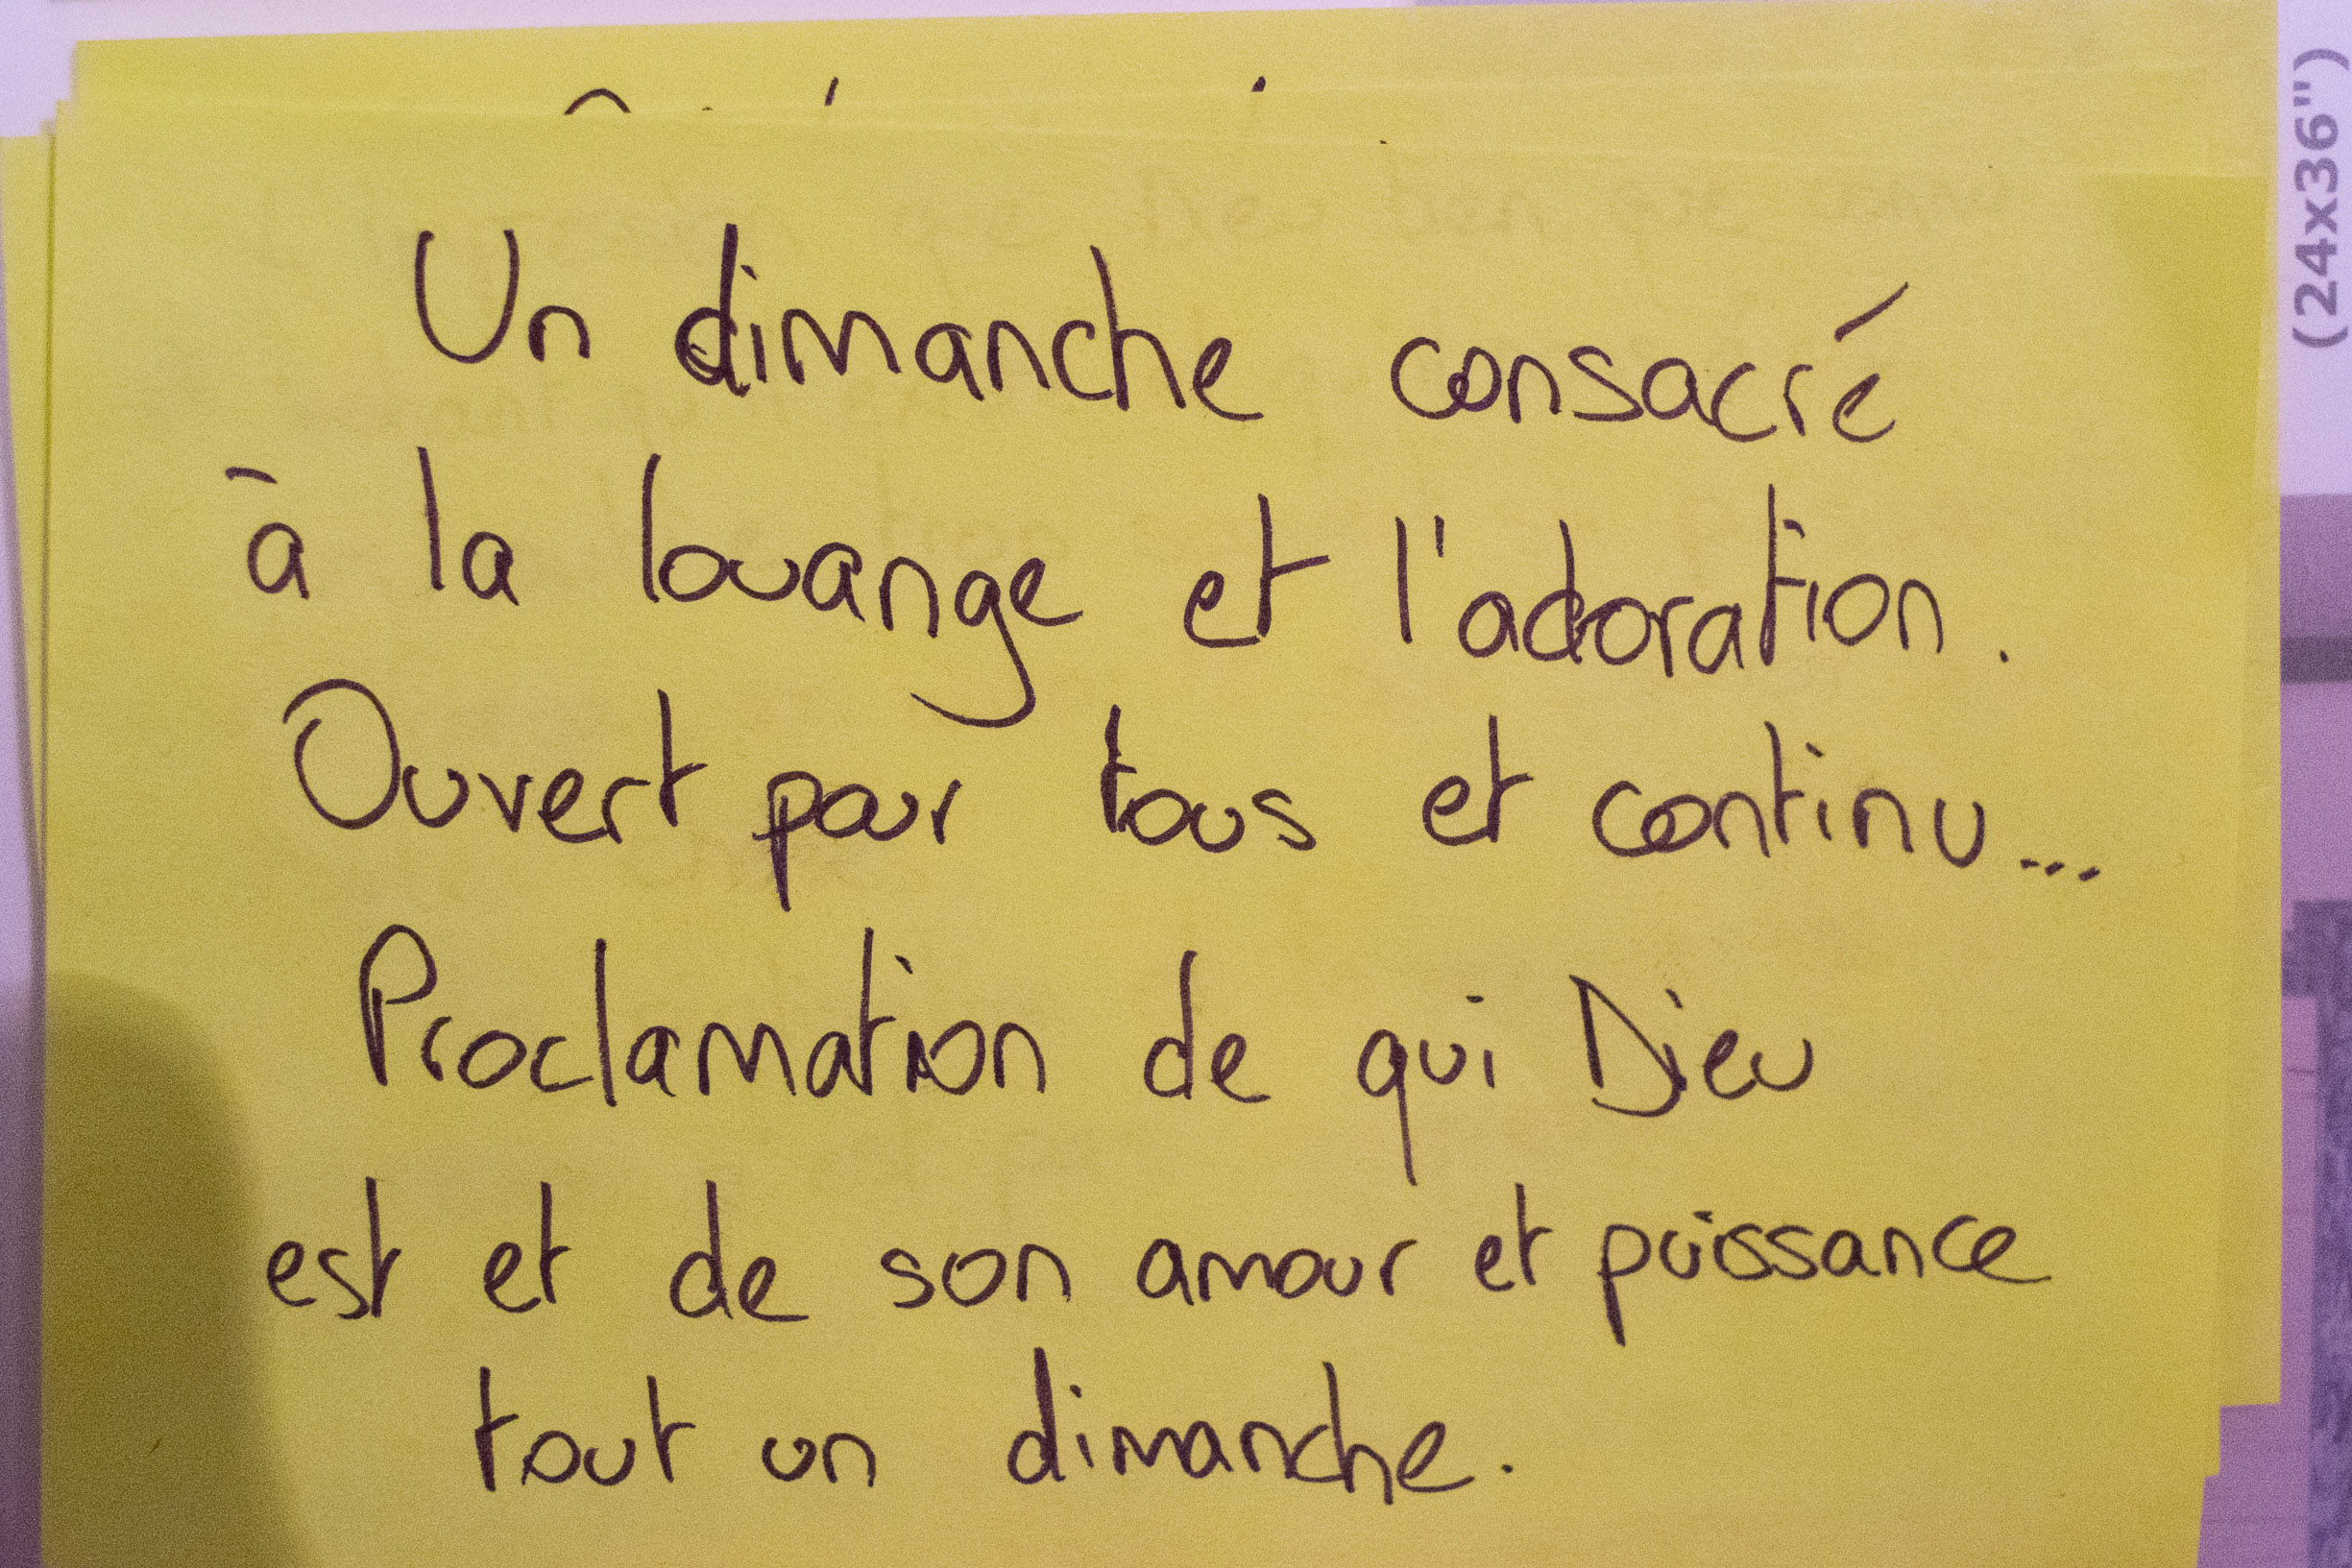 Un dimanche consacré
à la louange et l'adoration.
Ouvert pour tous et continu...
Proclamation de qui Dieu
est et de son amour et puissance
tout un dimanche.
(24x36")